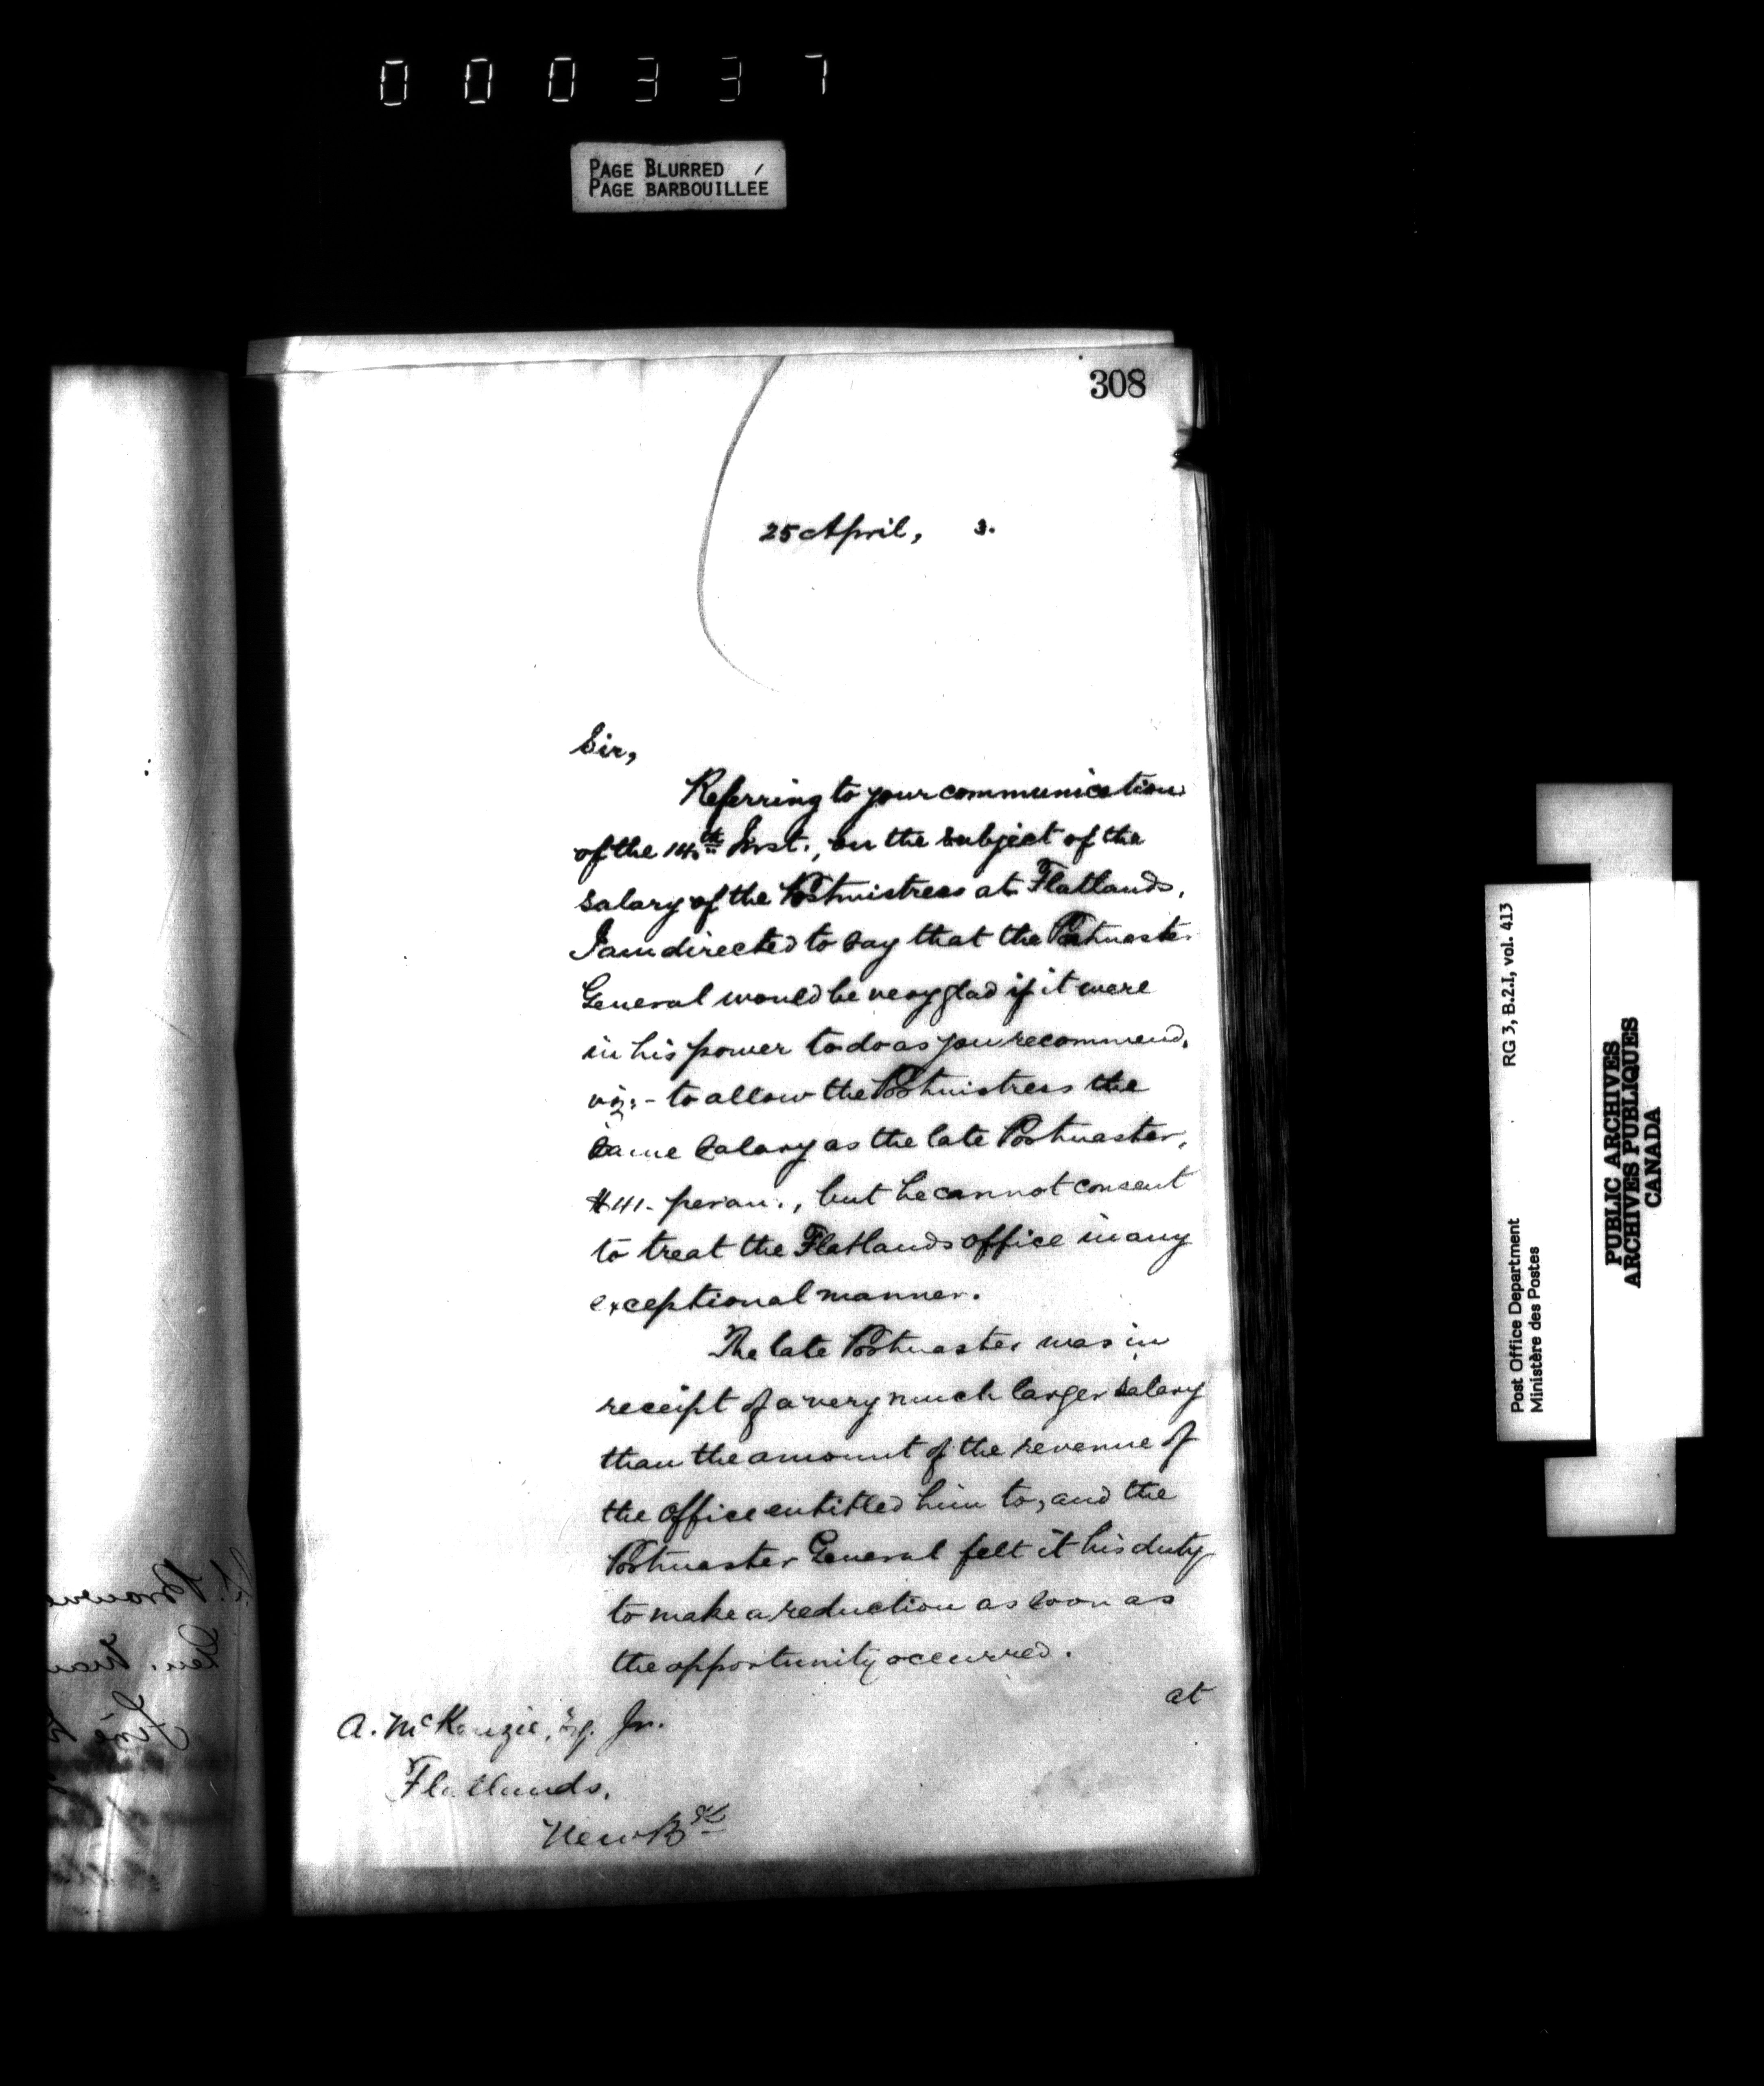 000337
PAGE BLURRED
PAGE BARBOUILLÉE
308
25 April, 3.
Sir,
Referring to your communication
of the 14th Inst., on the subject of the
salary of the Postmistress at Flatlands,
I am directed to say that the Postmaster
General would be very glad if it were
in his power to do as you recommend,
viz:- to allow the Postmistress the
same salary as the late Postmaster,
$41- per an., but he cannot consent
to treat the Flatlands office in any
exceptional manner.
The late Postmaster was in
receipt of a very much larger salary
than the amount of the revenue of
the office entitled him to, and the
Postmaster General felt it his duty
to make a reduction as soon as
the opportunity occurred.
at
A. McKenzie, Esq. Jr.
Flatlands,
New Bk
Post Office Department
Ministère des Postes
RG 3, B.2.I, vol. 413
PUBLIC ARCHIVES
ARCHIVES PUBLIQUES
CANADA